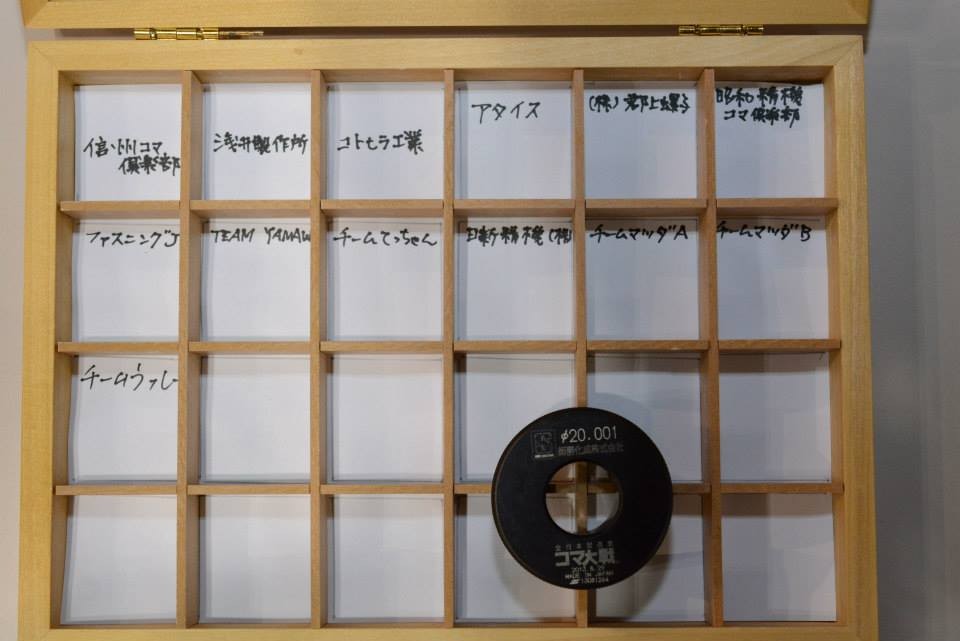 信州コマ
倶楽部
浅井製作所
コトヒラ工業
アタイス
(株)郡上螺子
昭和精機
コマ倶楽部
ファスニングJ
TEAM YAMAW
チームてっちゃん
日新精機(株)
チームマツダA
チームマツダB
チームヴァレー
φ20.001
株式会社
全日本製造業
コマ大戦
MADE IN JAPAN
13081264